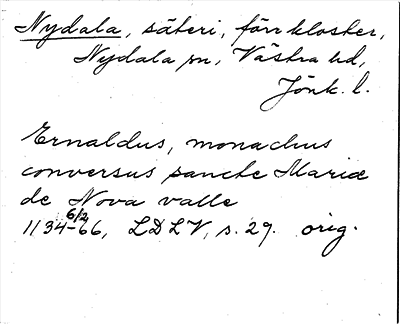 Nydala, säteri, förr kloster,
Nydala sn, Västra hd,
Jönk. l.
Ernaldus, monachus
conversus sancte Marie
de Nova valle
6/2
1134-66, LDLV, s. 29. orig.